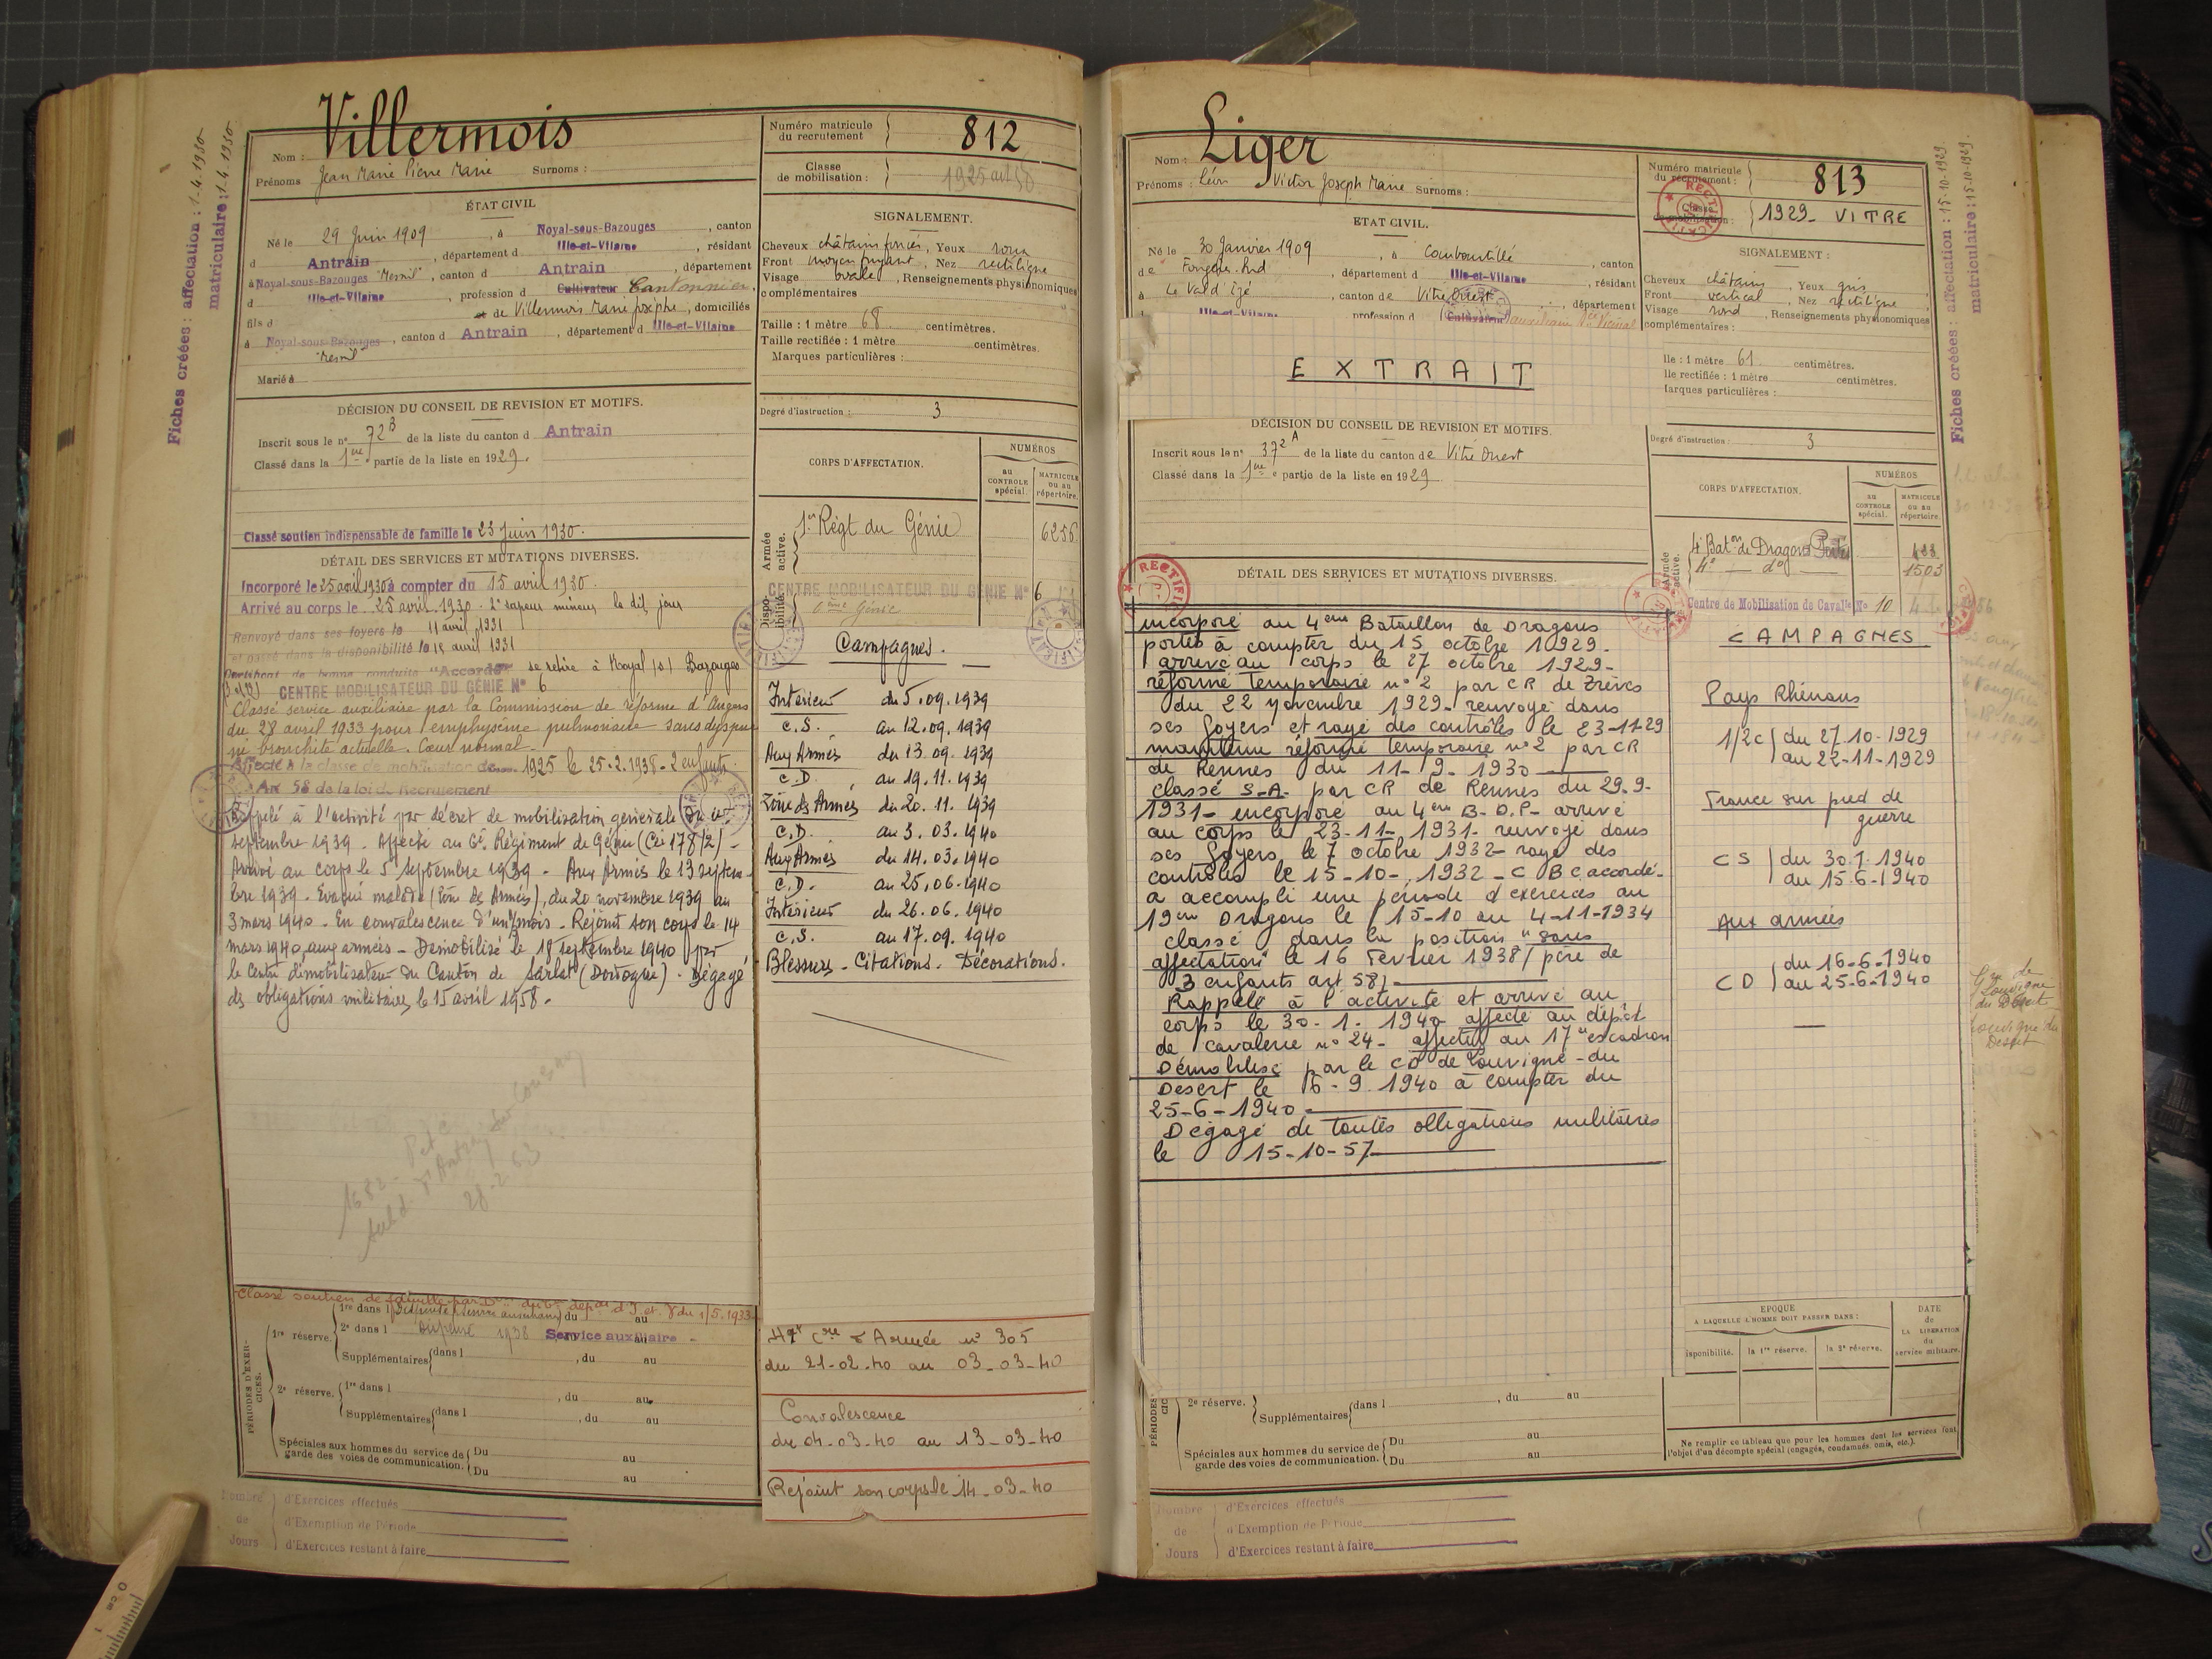 Fiches créées : affectation : 1-4-1930
matriculaire : 1-4-1930
Nom : Villermois
Prénoms Jean Marie Pierre Marie Surnoms :
Numéro matricule du recrutement 812
Classe de mobilisation : 1925 art 58
ÉTAT CIVIL
Né le 29 Juin 1909, à Noyal-sous-Bazouges, canton
d Antrain, département d Ille-et-Vilaine, résidant
à Noyal-sous-Bazouges "Mesnil", canton d Antrain, département
d Ille-et-Vilaine, profession d Cultivateur Cantonnier,
fils d et de Villermois Marie Josèphe, domiciliés
à Noyal-sous-Bazouges, canton d Antrain, département d Ille-et-Vilaine
"Mesnil"
Marié à
SIGNALEMENT.
Cheveux châtains foncés, Yeux roux
Front moyen fuyant, Nez rectiligne
Visage ovale, Renseignements physionomiques
complémentaires
Taille : 1 mètre 68 centimètres.
Taille rectifiée : 1 mètre centimètres.
Marques particulières :
DÉCISION DU CONSEIL DE REVISION ET MOTIFS.
Inscrit sous le n° 72 B de la liste du canton d Antrain
Classé dans la 1ère partie de la liste en 1929.
Classé soutien indispensable de famille le 23 Juin 1930.
Degré d'instruction : 3
CORPS D'AFFECTATION.
NUMÉROS
au CONTROLE spécial.
MATRICULE ou au répertoire.
Armée active.
1er Régt du Génie 6256
Dispo-nibilité
CENTRE MOBILISATEUR DU GÉNIE N° 6
6ème Génie
DÉTAIL DES SERVICES ET MUTATIONS DIVERSES.
Incorporé le 25 avril 1930 à compter du 15 avril 1930.
Arrivé au corps le 25 avril 1930. 2e sapeur mineur le dit jour
Renvoyé dans ses foyers le 11 avril 1931
et passé dans la disponibilité le 15 avril 1931
Certificat de bonne conduite "Accordé" se retire à Noyal /s/ Bazouges
CENTRE MOBILISATEUR DU GÉNIE N° 6
Classé service auxiliaire par la Commission de réforme d'Angers
du 28 avril 1933 pour emphysème pulmonaire sans dyspnée
ni bronchite actuelle. Cœur normal.
Affecté à la classe de mobilisation de 1925 le 25.2.1938 - 2 enfants
Art 58 de la loi de Recrutement
Rappelé à l'activité par décret de mobilisation générale du
septembre 1939. Affecté au 6e Régiment de Génie (Cie 178/2) -
Arrivé au corps le 5 septembre 1939 - Aux Armées le 13 septem-
bre 1939. Evacué malade (Zone des Armées), du 20 novembre 1939 au
3 mars 1940. En convalescence d'un mois. Rejoint son corps le 14
mars 1940, aux armées - Démobilisé le 18 septembre 1940 par
le Centre démobilisateur du Canton de Sarlat (Dordogne). Dégagé
des obligations militaires le 15 avril 1958.
Campagnes.
Intérieur du 5.09.1939
C.S. au 12.09.1939
Aux Armées du 13.09.1939
C.D. au 19.11.1939
Zone des Armées du 20.11.1939
C.D. au 3.03.1940
Aux Armées du 14.03.1940
C.D. au 25.06.1940
Intérieur du 26.06.1940
C.S. au 17.09.1940
Blessures - Citations. Décorations.
28.2.63
Classé soutien de famille par d'I. et V du 1/5.1933
PÉRIODES D'EXERCICES.
1re réserve.
1re dans l du au
2e dans l dispensé 1938 Service auxiliaire - au
Supplémentaires dans l , du au
2e réserve.
1re dans l , du au
Supplémentaires dans l , du au
Spéciales aux hommes du service de garde des voies de communication.
Du au
Du au
du 21-02-40 au 03-03-40
Convalescence
du 04-03-40 au 13-03-40
Rejoint son corps le 14-03-40
Nombre de Jours
d'Exercices effectués
d'Exemption de Période
d'Exercices restant à faire
Nom : Liger
Prénoms : Léon Victor Joseph Marie Surnoms :
Numéro matricule du recrutement : 813
Classe de mobilisation : 1929 - VITRE
RECTIFICATIF
ETAT CIVIL.
Né le 30 Janvier 1909, à Combourtillé, canton
de Fougères-Sud, département d Ille-et-Vilaine, résidant
à Le Val d'Izé, canton de Vitré Ouest, département
Ille-et-Vilaine profession d Cultivateur auxiliaire
EXTRAIT
SIGNALEMENT :
Cheveux châtains, Yeux gris
Front vertical, Nez rectiligne
Visage rond, Renseignements physionomiques
complémentaires :
lle : 1 mètre 61 centimètres.
lle rectifiée : 1 mètre centimètres.
larques particulières :
DÉCISION DU CONSEIL DE REVISION ET MOTIFS.
Inscrit sous le n° 372 A de la liste du canton de Vitré Ouest
Classé dans la 1ère partie de la liste en 1929
Degré d'instruction : 3
CORPS D'AFFECTATION.
NUMÉROS
au CONTROLE spécial.
MATRICULE ou au répertoire.
Armée active.
4e Baton de Dragons Portés 433
4e do 1503
Centre de Mobilisation de Cavalie N° 10
DÉTAIL DES SERVICES ET MUTATIONS DIVERSES.
incorporé au 4ème Bataillon de Dragons
portés à compter du 15 octobre 1929.
arrivé au corps le 27 octobre 1929-
réformé temporaire n° 2 par CR de Trèves
du 22 novembre 1929- renvoyé dans
ses foyers et rayé des contrôles le 23-11-29
maintenu réformé temporaire n° 2 par CR
de Rennes du 11-9-1930
classé S.A. par CR de Rennes du 29.9-
1931- incorporé au 4ème B.D.P- arrivé
au corps le 23-11-1931- renvoyé dans
ses foyers le 7 octobre 1932- rayé des
contrôles le 15-10-1932 - C B C accordé-
a accompli une période d'exercices au
19ème Dragons le 15-10 au 4-11-1934
classé dans la position "sans
affectation" le 16 Février 1938 / père de
3 enfants art 58)
Rappelé à l'activité et arrivé au
corps le 30-1-1940 affecté au dépôt
de cavalerie n° 24- affecté au 17e escadron
Démobilisé par le CD de Louvigné-du
Désert le 6-9-1940 à compter du
25-6-1940
Dégagé de toutes obligations militaires
le 15-10-57
CAMPAGNES
Pays Rhénans
1/2c du 27-10-1929
au 22-11-1929
France sur pied de
guerre
CS du 30.1.1940
au 15-6-1940
Aux armées
CD du 16-6-1940
au 25-6-1940
Fiches créées : affectation : 15-10-1929
matriculaire : 15-10-1929
Louvigné
du Désert
Louvigné du
Désert
EPOQUE
A LAQUELLE L'HOMME DOIT PASSER DANS :
isponibilité. la 1re réserve. la 2e réserve.
DATE de LA LIBÉRATION du service militaire.
Ne remplir ce tableau que pour les hommes dont les services font
l'objet d'un décompte spécial (engagés, condamnés, omis, etc.).
PÉRIODES
2e réserve.
Supplémentaires dans l , du au
Spéciales aux hommes du service de garde des voies de communication.
Du au
Du au
Nombre de Jours
d'Exercices effectués
d'Exemption de Période
d'Exercices restant à faire
0 cm 1